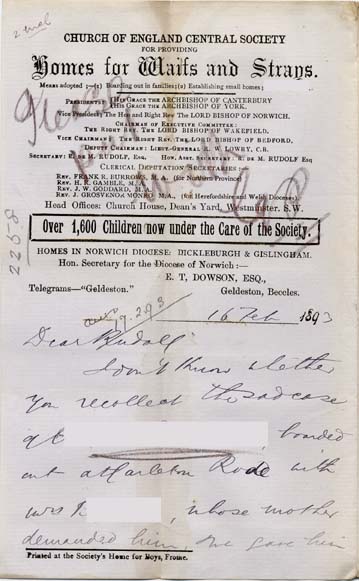 2 encl
CHURCH OF ENGLAND CENTRAL SOCIETY
FOR PROVIDING
Homes for Waifs and Strays.
MEANS ADOPTED :—(1) Boarding out in families; (2) Establishing small homes;
PRESIDENTS: HIS GRACE THE ARCHBISHOP OF CANTERBURY
HIS GRACE THE ARCHBISHOP OF YORK.
Vice President: The Hon and Right Rev THE LORD BISHOP OF NORWICH.
CHAIRMAN OF EXECUTIVE COMMITTEE:
THE RIGHT REV. THE LORD BISHOP OF WAKEFIELD.
VICE CHAIRMAN: THE RIGHT REV. THE LORD BISHOP OF BEDFORD.
DEPUTY CHAIRMAN: LIEUT.-GENERAL R. W. LOWRY, C.B.
SECRETARY: E. DE M. RUDOLF, ESQ. HON. ASST. SECRETARY: R. DE M. RUDOLF ESQ
CLERICAL DEPUTATION SECRETARIES:
REV. FRANK R. BURROWS, M.A. (for Northern Province)
REV. H. R. GAMBLE, M.A.
REV. J. W. GODDARD, M.A.
REV. J GROSVENOR MONRO, M.A., (for Herefordshire and Welsh Dioceses)
Head Offices: Church House, Dean's Yard, Westminster. S.W.
Over 1,600 Children now under the Care of the Society.
2258
HOMES IN NORWICH DIOCESE: DICKLEBURGH & GISLINGHAM.
Hon. Secretary for the Diocese of Norwich:—
E. T. DOWSON, ESQ.,
Telegrams—"Geldeston." Geldeston, Beccles.
16 Feb 1893
Dear Rudolf
I don't know whether
you recollect the sad case
of boarded
out at Carleton Rode with
Mrs whose mother
demanded him, we gave him
Printed at the Society's Home for Boys, Frome.